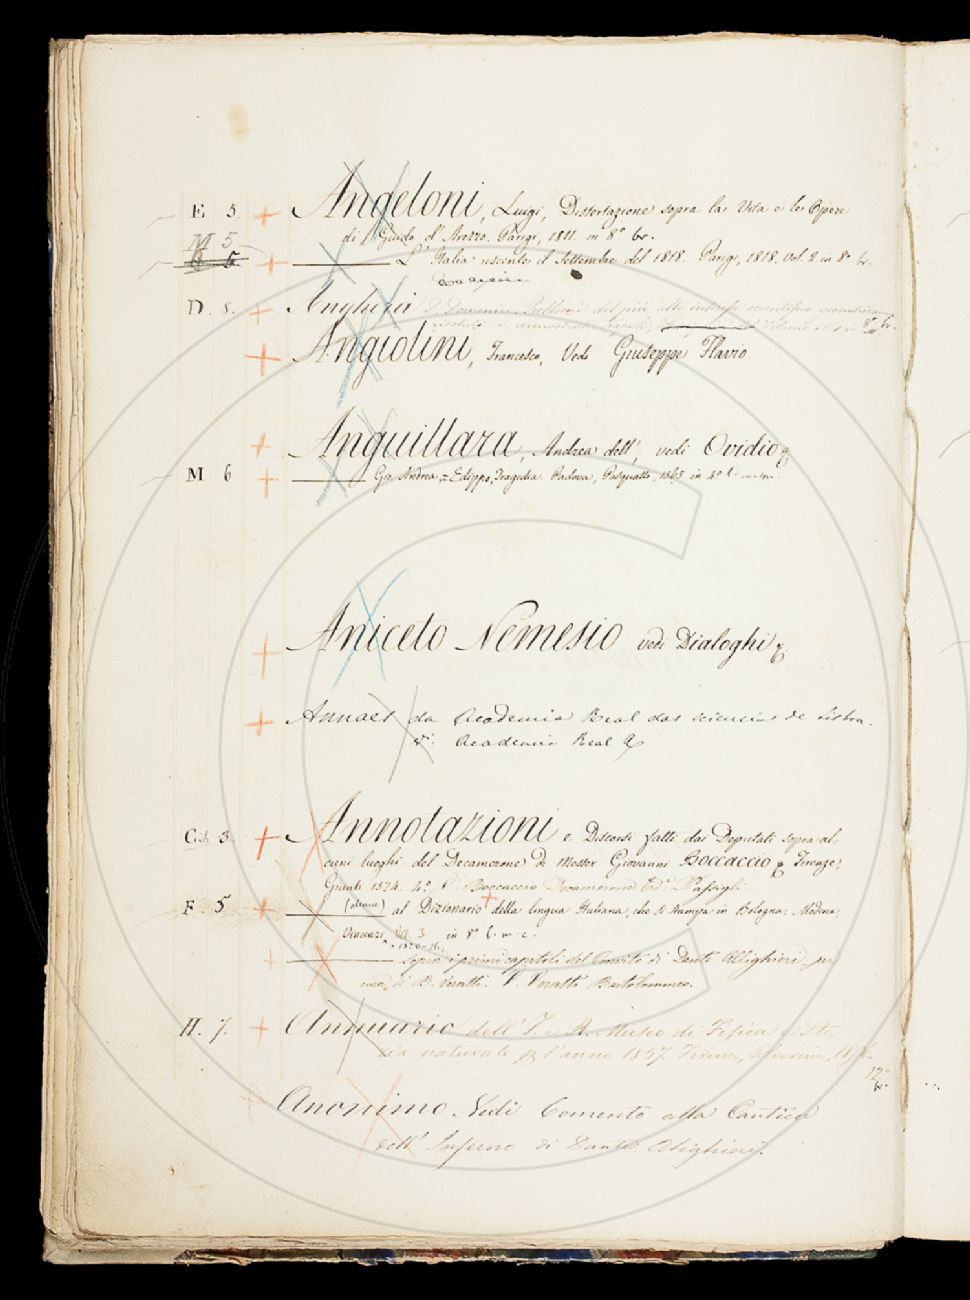 E 5. + Angeloni, Luigi, Dissertazione sopra la Vita e le Opere
di Guido d'Arezzo. Parigi, 1811. in 8° br.
M 5.
5 + L'Italia uscente il Settembre del 1818. Parigi, 1818. Vol. 2 in 8° br.
D. 8. + Anghera D. Domenico
8° br.
+ Angiolini, Francesco, Vedi Giuseppe Flavio.
+ Anguillara, Andrea dell', vedi Ovidio
M 6 + Gio Andrea = Edippo, Tragedia. Padova, Pasquatto, 1565 in 4°
+ Aniceto Nemesio vedi Dialoghi
+ Annaes da Academia Real das sciencias de Lisboa.
V. Academia Real
3. + Annotazioni e Discorsi fatti dai Deputati sopra al-
cuni luoghi del Decamerone di Messer Giovanni Boccaccio Firenze,
Giunti 1574. 4° V. Boccaccio
F. 5 + (alcune) al Dizionario + della lingua Italiana, che si stampa in Bologna. Modena,
Vincenzi, in 8°
1820-26.
+ sopra i primi capitoli del Convito di Dante Allighieri, per
cura di B. Veratti. V. Veratti Bartolommeo.
H. 7. + Annuario dell' I. e R. Museo di Fisica e Sto-
ria naturale p l'anno 1857. Firenze,
12°
br.
+ Anonimo. Vedi Comento alla Cantica
dell' Inferno di Dante Alighieri.